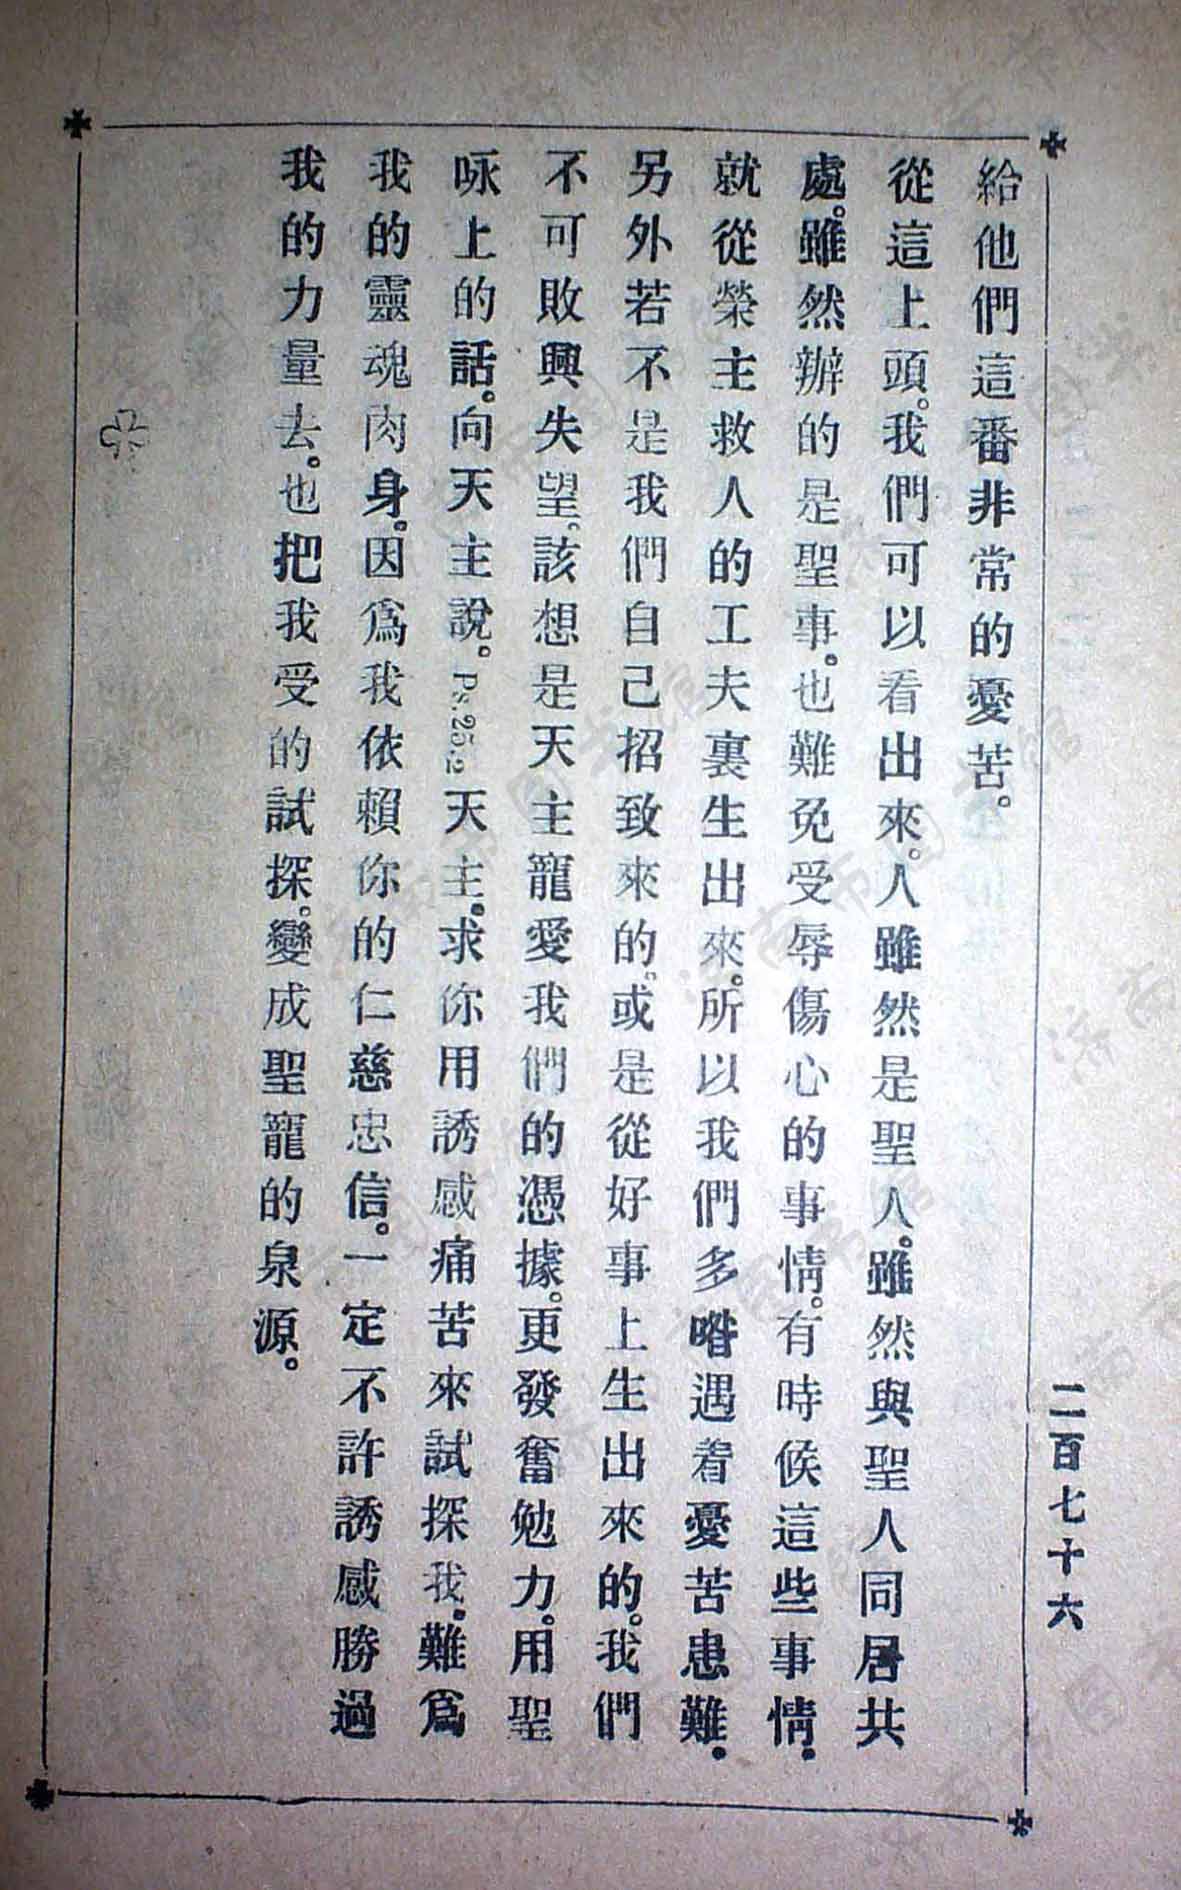 給他們這番非常的憂苦。
從這上頭。我們可以看出來。人雖然是聖人。雖然與聖人同居共
處。雖然辦的是聖事。也難免受辱傷心的事情。有時候這些事情。
就從榮主救人的工夫裏生出來。所以我們多喒遇着憂苦患難。
另外若不是我們自己招致來的。或是從好事上生出來的。我們
不可敗興失望。該想是天主寵愛我們的憑據。更發奮勉力。用聖
咏上的話。向天主說。Ps.25.2天主。求你用誘感痛苦來試探我。難爲
我的靈魂肉身。因爲我依賴你的仁慈忠信。一定不許誘感勝過
我的力量去。也把我受的試探。變成聖寵的泉源。
二百七十六
济南市图书馆